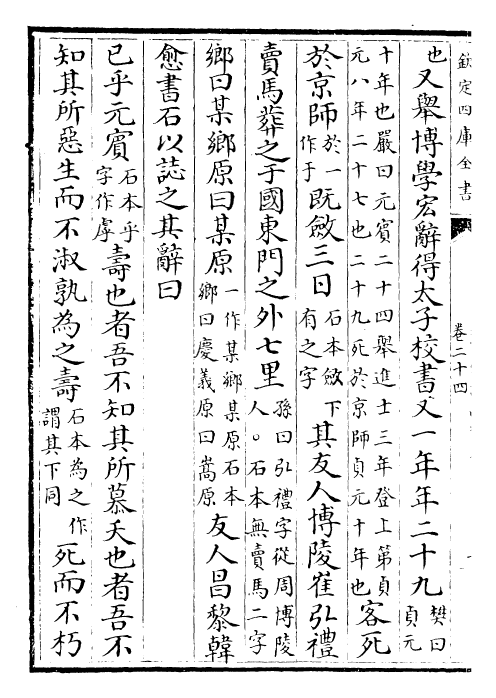 欽定四庫全書 卷二十四
也又舉博學宏辭得太子校書又一年年二十九樊曰貞元
十年也嚴曰元賓二十四舉進士三年登上第貞元八年二十七也二十九死於京師貞元十年也客死
於京師於一作于既斂三日石本斂下有之字其友人博陵崔弘禮
賣馬葬之于國東門之外七里孫曰弘禮字從周博陵人。石本無賣馬二字
鄉曰某鄉原曰某原一作某鄉某原石本鄉曰慶義原曰嵩原友人昌黎韓
愈書石以誌之其辭曰
已乎元賓石本乎字作虖壽也者吾不知其所慕夭也者吾不
知其所惡生而不淑孰為之壽石本為之作謂其下同死而不朽